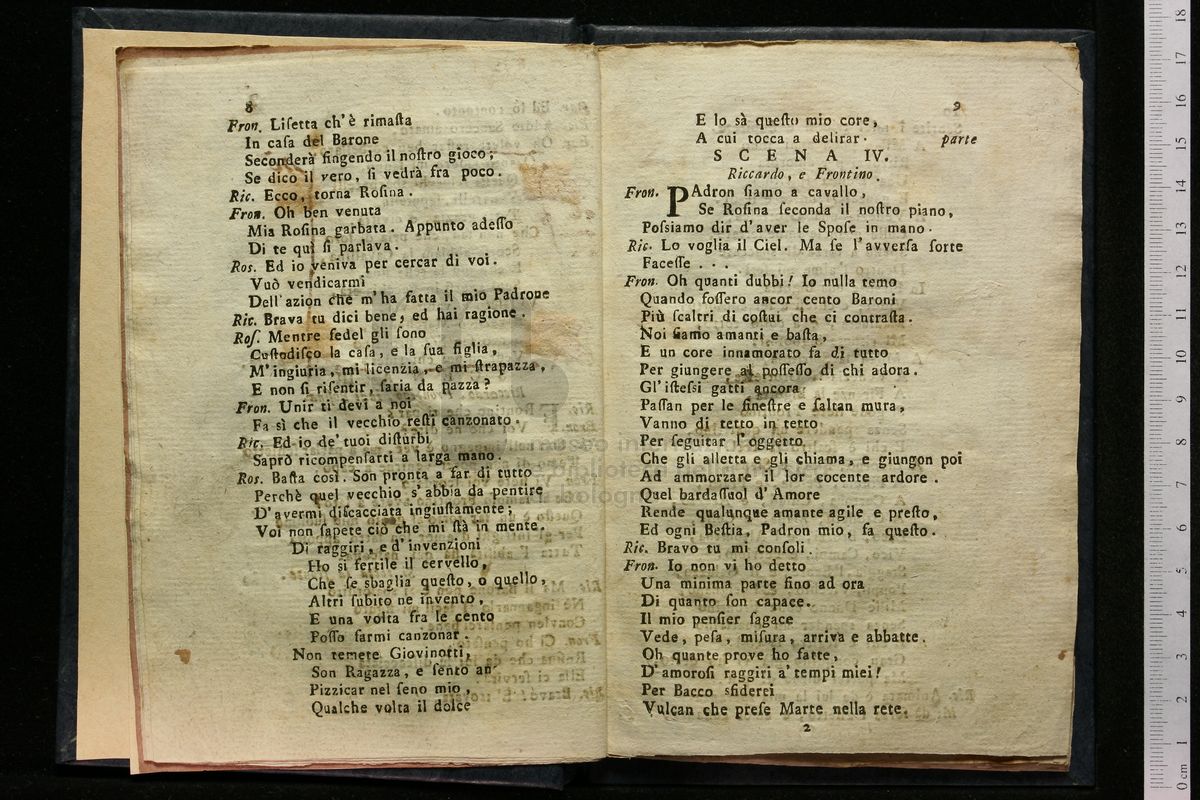 8
Fron. Liſetta ch' è rimaſta
In caſa del Barone
Seconderà fingendo il noſtro gioco;
Se dico il vero, ſi vedrà fra poco.
Ric. Ecco, torna Roſina.
Fron. Oh ben venuta
Mia Roſina garbata. Appunto adeſſo
Di te quì ſi parlava.
Ros. Ed io veniva per cercar di voi.
Vuò vendicarmi
Dell' azion che m' ha fatta il mio Padrone
Ric. Brava tu dici bene, ed hai ragione.
Roſ. Mentre fedel gli ſono
Cuſtodiſco la caſa, e la ſua figlia,
M' ingiuria, mi licenzia, e mi ſtrapazza,
E non ſi riſentir, ſaria da pazza?
Fron. Unir ti devi a noi
Fa sì che il vecchio reſti canzonato.
Ric. Ed io de' tuoi diſturbi
Saprò ricompenſarti a larga mano.
Ros. Baſta così. Son pronta a far di tutto
Perchè quel vecchio s' abbia da pentire
D' avermi diſcacciata ingiuſtamente;
Voi non ſapete ciò che mi ſtà in mente.
Di raggiri, e d' invenzioni
Ho sì fertile il cervello,
Che ſe sbaglia queſto, o quello,
Altri ſubito ne invento,
E una volta fra le cento
Poſſo farmi canzonar.
Non temete Giovinotti,
Son Ragazza, e ſento an'
Pizzicar nel ſeno mio,
Qualche volta il dolce
9
E lo sà queſto mio core,
A cui tocca a delirar. parte
SCENA IV.
Riccardo, e Frontino.
Fron. PAdron ſiamo a cavallo,
Se Roſina ſeconda il noſtro piano,
Poſsiamo dir d' aver le Spoſe in mano.
Ric. Lo voglia il Ciel. Ma ſe l' avverſa ſorte
Faceſſe . . .
Fron. Oh quanti dubbi! Io nulla temo
Quando foſſero ancor cento Baroni
Più ſcaltri di coſtui che ci contraſta.
Noi ſiamo amanti e baſta,
E un core innamorato fa di tutto
Per giungere al poſſeſſo di chi adora.
Gl' iſteſsi gatti ancora
Paſſan per le fineſtre e ſaltan mura,
Vanno di tetto in tetto
Per ſeguitar l' oggetto
Che gli alletta e gli chiama, e giungon poi
Ad ammorzare il lor cocente ardore.
Quel bardaſſuol d' Amore
Rende qualunque amante agile e preſto,
Ed ogni Beſtia, Padron mio, fa queſto.
Ric. Bravo tu mi conſoli.
Fron. Io non vi ho detto
Una minima parte fino ad ora
Di quanto ſon capace.
Il mio penſier ſagace
Vede, peſa, miſura, arriva e abbatte.
Oh quante prove ho fatte,
D' amoroſi raggiri a' tempi miei!
Per Bacco sfiderei
Vulcan che preſe Marte nella rete.
2